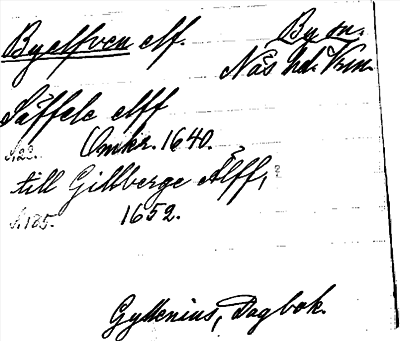 Byelfven elf. By sn.
Näs hd. Vrm.
Säffele elff
S.23. Omkr. 1640.
till Gillberge Älff,
S.185. 1652.
Gyllenius, Dagbok.